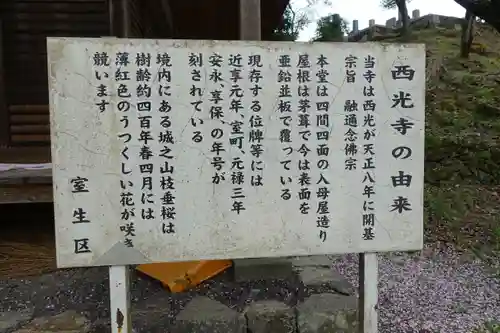 西光寺の由来
当寺は西光が天正八年に開基
宗旨 融通念佛宗
本堂は四間四面の入母屋造り
屋根は茅葺で今は表面を
亜鉛並板で覆っている
現存する位牌等には
近享元年、室町、元禄三年
安永、享保、の年号が
刻されている
境内にある城之山枝垂桜は
樹齢約四百年春四月には
薄紅色のうつくしい花が咲き
競います
室生区